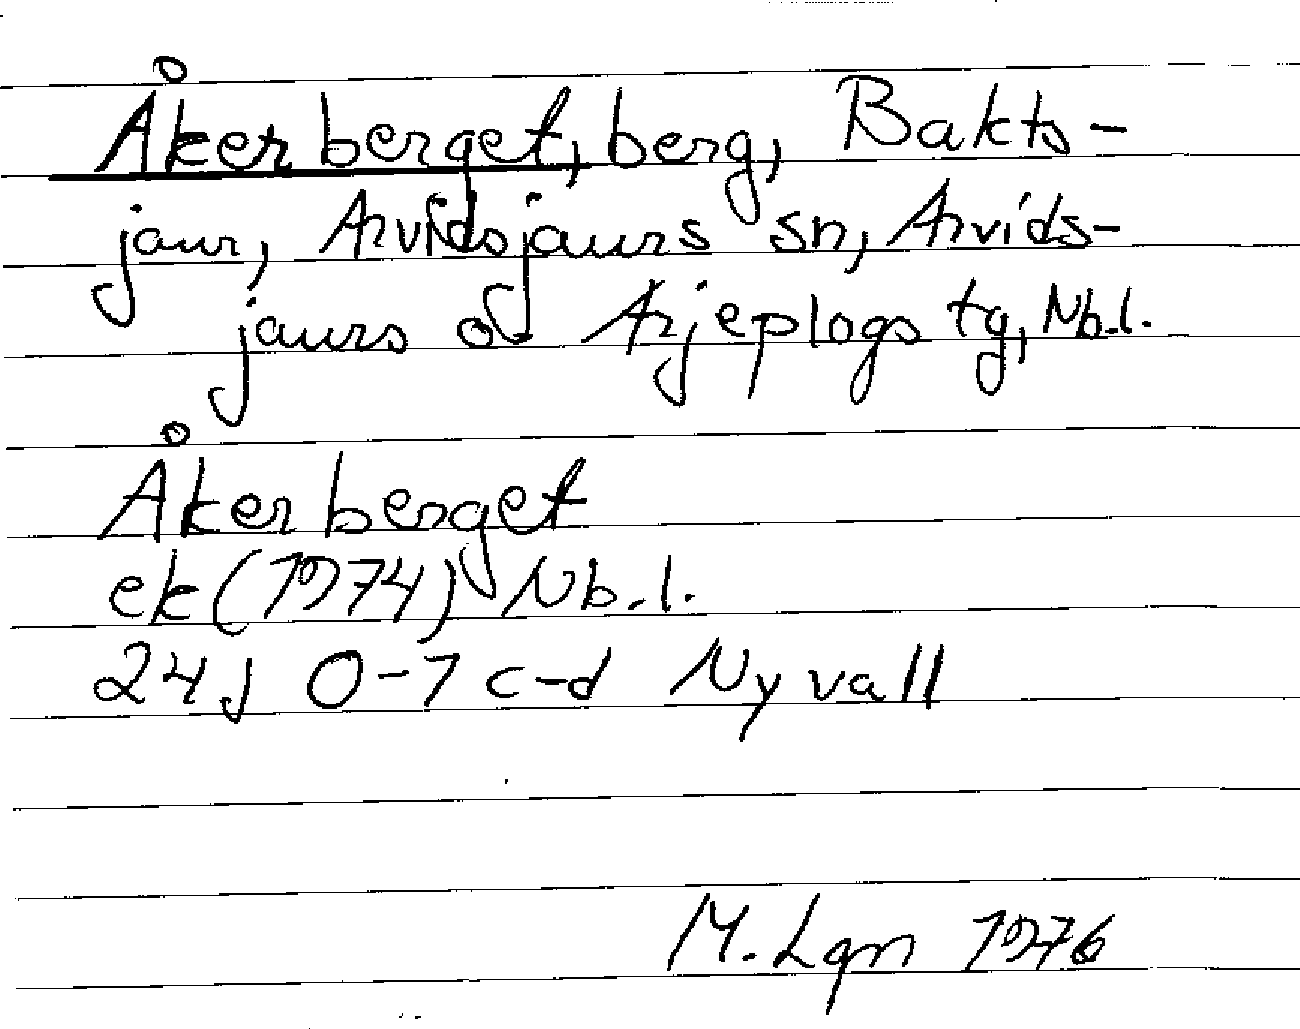 Åkerberget, berg, Bakts-
jaur, Arvidsjaurs sn, Arvids-
jaurs o Arjeplogs tg, Nb.l.
Åkerberget
ek (1974) Nb.l.
24J 0-1 c-d Nyvall
M. Lgn 1976